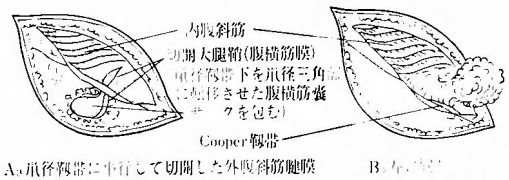 内腹斜筋
切開大腿鞘(腹横筋膜)
鼡径靱帯下を鼡径三角
に転移させた腹横筋嚢
を包む)
Cooper靱帯
A:鼡径靱帯に平行して切開した外腹斜筋腱膜
B: